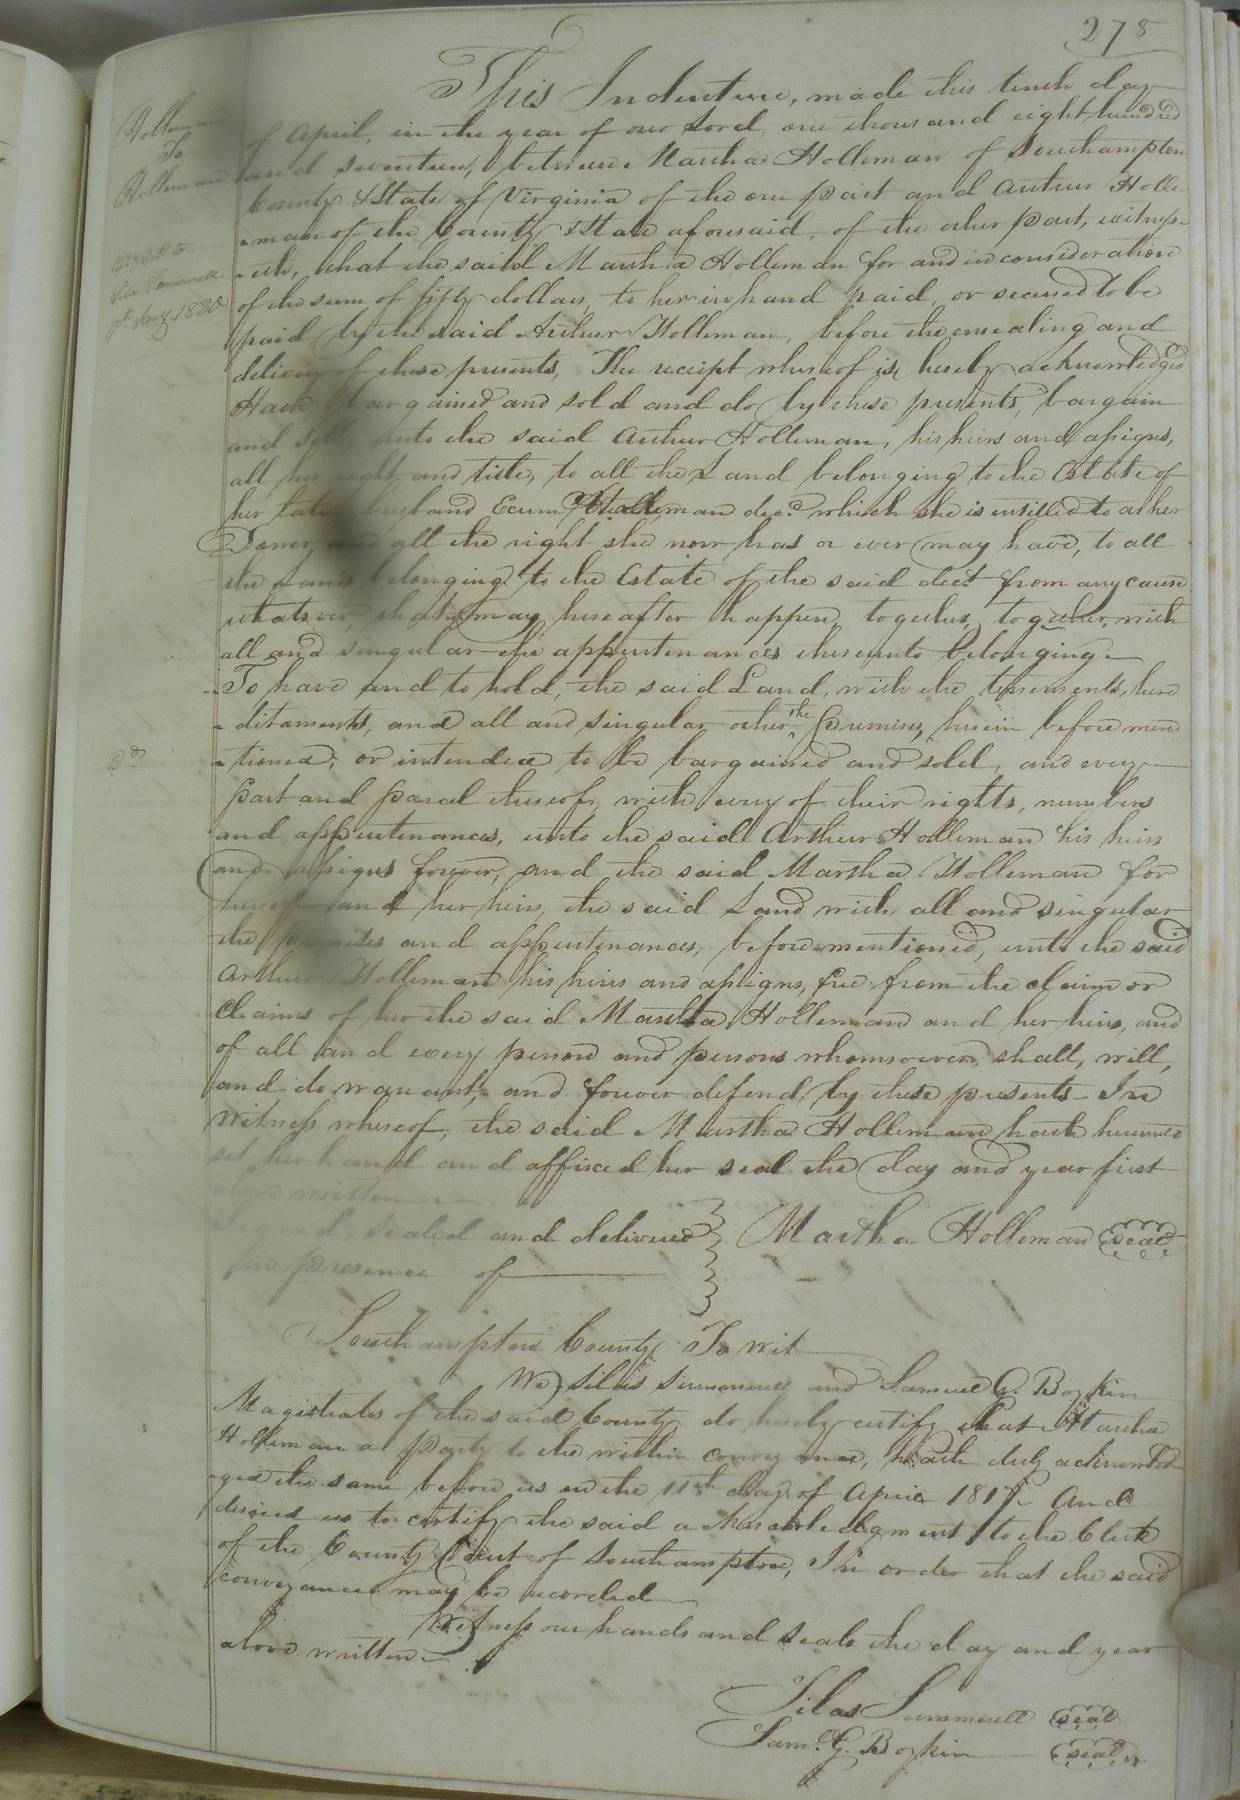 278
Holleman
To
Holleman
Silas Summerell
Jany 1820
This Indenture, made this tenth day
of April, in the year of our Lord, one thousand eight hundred
and seventeen, between Martha Holleman of Southampton
County & State of Virginia of the one part and Arthur Holle
-man of the County & State aforesaid, of the other part, witness-
-eth, that the said Martha Holleman for and in consideration
of the sum of fifty dollars, to her in hand paid, or secured to be
paid by the said Arthur Holleman, before the ensealing and
delivery of these presents, The receipt whereof is hereby acknowledged
Hath bargained and sold and do by these presents, bargain
and sell unto the said Arthur Holleman, his heirs and assigns,
all her right and title, to all the Land belonging to the Estate of
her late husband Holleman decd. which she is entitled to as her
Dower, and all the right she now has or ever may have, to all
the Lands belonging to the Estate of the said decd. from any cause
whatever, that may hereafter happen, together, together, with
all and singular the appurtenances thereunto belonging.
To have and to hold, the said Land, with the tenements, here
-ditaments, and all and singular other the premises, herein before men
-tioned, or intended to be bargained and sold, and every
part and parcel thereof, with every of their rights, members
and appurtenances, unto the said Arthur Holleman his heirs
and assigns forever, and the said Martha Holleman for
herself and her heirs, the said Land with all and singular
the premises and appurtenances, before mentioned, unto the said
Arthur Holleman his heirs and assigns, free from the claim or
Claims of her the said Martha Holleman and her heirs, and
of all and every person and persons whomsoever, shall, will,
and do warrant, and forever defend by these presents. In
Witness whereof, the said Martha Holleman hath hereunto
set her hand and affixed her seal the day and year first
above written.
Signed, sealed and delivered
in presence of
Martha Holleman seal
Southampton County To wit
We, Silas Summerell and Samuel G. Boykin
Magistrates of the said County, do hereby certify that Martha
Holleman a party to the within conveyance, hath duly acknowled
-ged the same before us on the 11th day of April 1817. And
desired us to certify the said acknowledgment to the Clerk
of the County Court of Southampton, In order that the said
conveyance may be recorded
Witness our hands and seals the day and year
above written.
Silas Summerell seal
Saml. G. Boykin seal